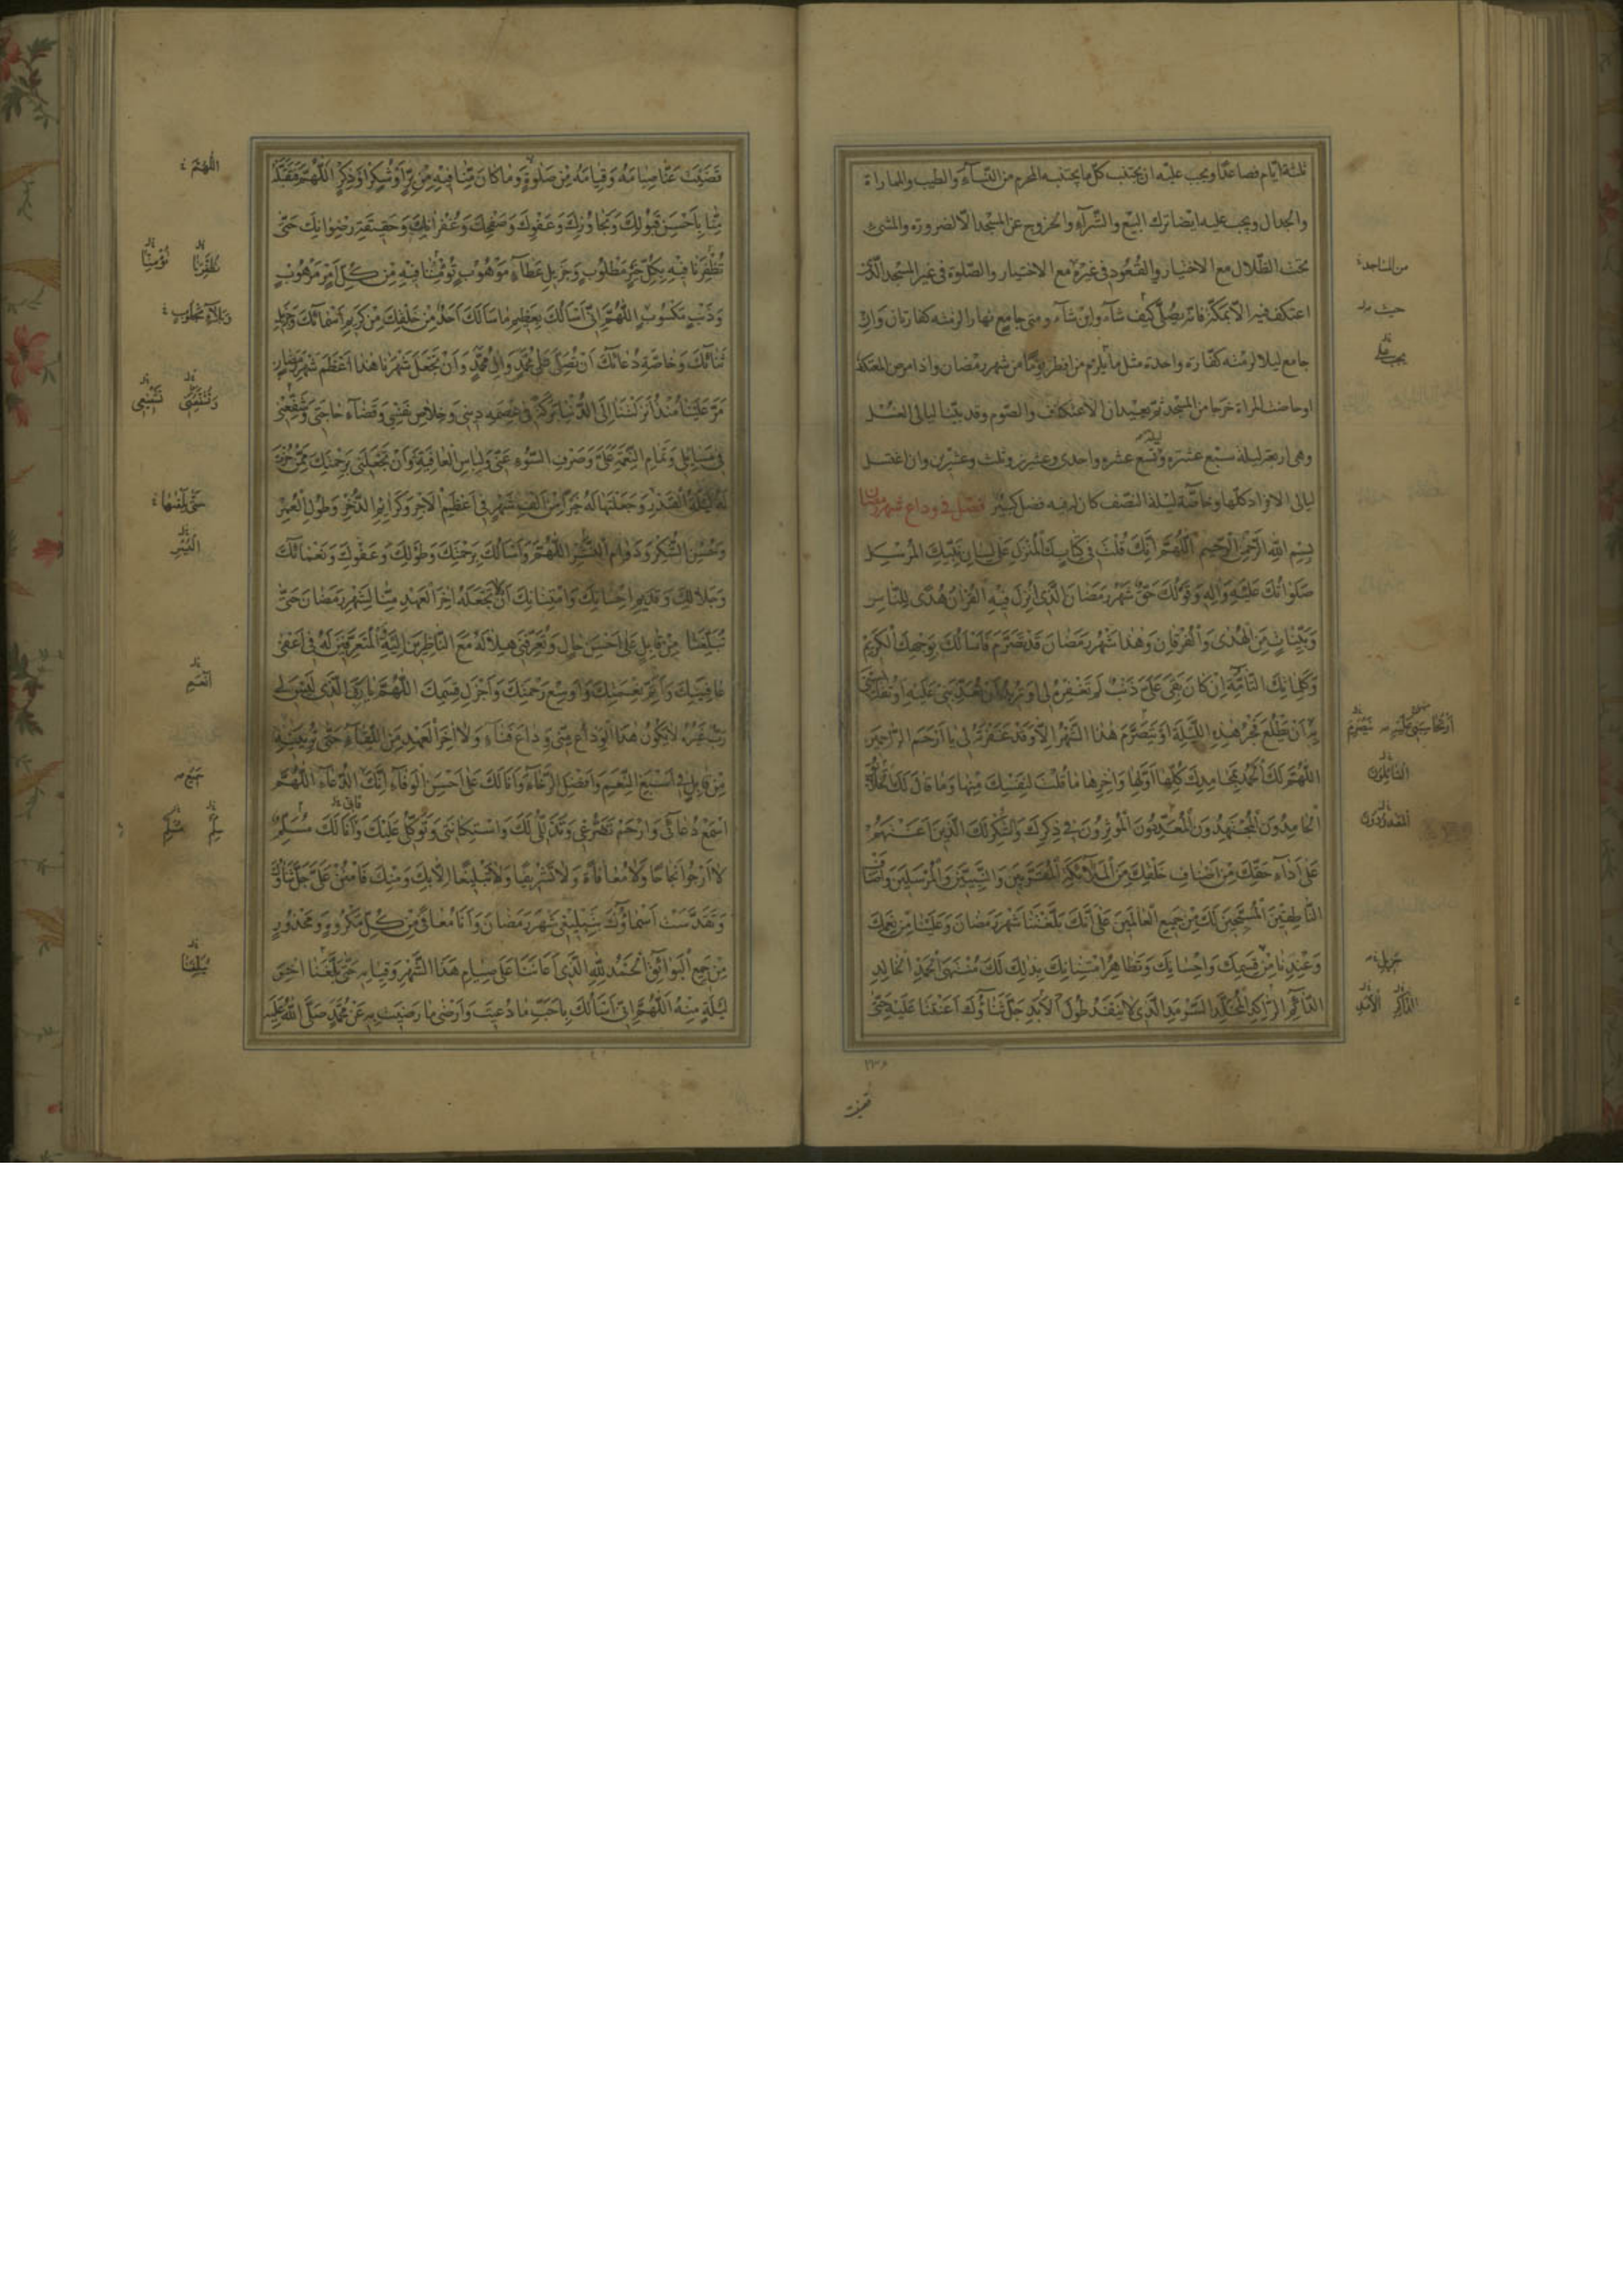 ثلثة ايّام فصاعدًا ويجب عليه ان يجتنب كلّ ما يجتنبه المحرم من النّسآء والطيب والمماراة
والجدال ويجب عليه ايضا ترك البيع والشّرآء والخروج عن المسجد الّا لضرورة والمشي
تحت الظّلال مع الاختيار والقعود فى غيره مع الاختيار والصّلوة فى غير المسجد الّذى
اعتكف فيه الّا بمكّة فانّه يصلّى كيف شآء واين شآء ومتى جامع نهارا لزمته كفارتان وان
جامع ليلا لزمته كفّارة واحدة مثل ما يلزم من افطر يومًا من شهر رمضان واذا مرض المعتكف
او حاضت المراة خرجا من المسجد ثمّ يعيدان الاعتكاف والصّوم وقد بيّنا ليالى الغسل
وهى اربع ليلة سبع عشرة وتسع عشرة واحدى وعشرين وثلث وعشرين وان اغتسل
ليالى الافراد كلّها وخاصّة ليلة النّصف كان له فيه فضل كبير فصل فى وداع شهر رمضان
بِسْمِ اللهِ الرَّحْمٰنِ الرَّحِيمِ اَللّٰهُمَّ اِنَّكَ قُلْتَ فِى كِتَابِكَ الْمُنْزَلِ عَلٰى لِسَانِ نَبِيِّكَ الْمُرْسَلِ
صَلَوَاتُكَ عَلَيْهِ وَاٰلِهِ وَقَوْلُكَ حَقٌّ شَهْرُ رَمَضَانَ الَّذِى اُنْزِلَ فِيْهِ الْقُرْاٰنُ هُدًى لِلنَّاسِ
وَبَيِّنَاتٍ مِنَ الْهُدٰى وَالْفُرْقَانِ وَهٰذَا شَهْرُ رَمَضَانَ قَدْ تَصَرَّمَ فَاَسْاَلُكَ بِوَجْهِكَ الْكَرِيْمِ
وَكَلِمَاتِكَ التَّامَّةِ اِنْ كَانَ بَقِىَ عَلَىَّ ذَنْبٌ لَمْ تَغْفِرْهُ لِى اَوْ تُرِيْدُ اَنْ تُعَذِّبَنِى عَلَيْهِ اَوْ تُقَايِسَنِى
بِهِ اَنْ يَطْلُعَ فَجْرُ هٰذِهِ اللَّيْلَةِ اَوْ يَتَصَرَّمَ هٰذَا الشَّهْرُ اِلَّا وَقَدْ غَفَرْتَهُ لِى يَا اَرْحَمَ الرَّاحِمِيْنَ
اَللّٰهُمَّ لَكَ الْحَمْدُ بِمَحَامِدِكَ كُلِّهَا اَوَّلِهَا وَاٰخِرِهَا مَا قُلْتَ لِنَفْسِكَ مِنْهَا وَمَا قَالَ لَكَ الْخَلَائِقُ
الْحَامِدُوْنَ الْمُجْتَهِدُوْنَ الْمُعَدِّدُوْنَ الْمُؤْثِرُوْنَ فِى ذِكْرِكَ وَالشُّكْرِ لَكَ الَّذِيْنَ اَعَنْتَهُمْ
عَلٰى اَدَاءِ حَقِّكَ مِنْ اَصْنَافِ خَلْقِكَ مِنَ الْمَلَائِكَةِ الْمُقَرَّبِيْنَ وَالنَّبِيِّيْنَ وَالْمُرْسَلِيْنَ وَاَصْنَافِ
النَّاطِقِيْنَ الْمُسَبِّحِيْنَ لَكَ مِنْ جَمِيْعِ الْعَالَمِيْنَ عَلٰى اَنَّكَ بَلَّغْتَنَا شَهْرَ رَمَضَانَ وَعَلَيْنَا مِنْ نِعَمِكَ
وَعِنْدَنَا مِنْ قِسَمِكَ وَاِحْسَانِكَ وَتَظَاهُرِ امْتِنَانِكَ بِذٰلِكَ لَكَ مُنْتَهَى الْحَمْدِ الْخَالِدِ
الدَّائِمِ الرَّاكِدِ الْمُخَلَّدِ السَّرْمَدِ الَّذِى لَا يَنْفَدُ طُوْلَ الْاَبَدِ جَلَّ ثَنَاؤُكَ اَعَنْتَنَا عَلَيْهِ حَتّٰى
من المساجد
حيث
الْقَائِلُوْنَ
جزيل
الْاَبَدِ
قضيت
قَضَيْتَ عَنَّا صِيَامَهُ وَقِيَامَهُ مِنْ صَلٰوةٍ وَمَا كَانَ مِنَّا فِيْهِ مِنْ بِرٍّ اَوْ شُكْرٍ اَوْ ذِكْرٍ اَللّٰهُمَّ فَتَقَبَّلْهُ
مِنَّا بِاَحْسَنِ قَبُوْلِكَ وَتَجَاوُزِكَ وَعَفْوِكَ وَصَفْحِكَ وَغُفْرَانِكَ وَحَقِيْقَةِ رِضْوَانِكَ حَتّٰى
تُظْفِرَنَا فِيْهِ بِكُلِّ خَيْرٍ مَطْلُوْبٍ وَجَزِيْلِ عَطَاءٍ مَوْهُوْبٍ تُؤْمِنُنَا فِيْهِ مِنْ كُلِّ اَمْرٍ مَرْهُوْبٍ
وَذَنْبٍ مَكْسُوْبٍ اَللّٰهُمَّ اِنِّى اَسْاَلُكَ بِعَظِيْمِ مَا سَاَلَكَ اَحَدٌ مِنْ خَلْقِكَ مِنْ كَرِيْمِ اَسْمَائِكَ وَجَزِيْلِ
ثَنَائِكَ وَخَاصَّةِ دُعَائِكَ اَنْ تُصَلِّىَ عَلٰى مُحَمَّدٍ وَاٰلِ مُحَمَّدٍ وَاَنْ تَجْعَلَ شَهْرَنَا هٰذَا اَعْظَمَ شَهْرِ رَمَضَانَ
مَرَّ عَلَيْنَا مُنْذُ اَنْزَلْتَنَا اِلَى الدُّنْيَا بَرَكَةً فِى عِصْمَةِ دِيْنِى وَخَلَاصِ نَفْسِى وَقَضَاءِ حَاجَتِى وَتُشَفِّعَنِى
فِى مَسَائِلِى وَتَمَامِ النِّعْمَةِ عَلَىَّ وَصَرْفِ السُّوْءِ عَنِّى وَلِبَاسِ الْعَافِيَةِ وَاَنْ تَجْعَلَنِى بِرَحْمَتِكَ مِمَّنْ حُزْتَ
لَهُ لَيْلَةَ الْقَدْرِ وَجَعَلْتَهَا لَهُ خَيْرًا مِنْ اَلْفِ شَهْرٍ فِى اَعْظَمِ الْاَجْرِ وَكَرَائِمِ الذُّخْرِ وَطُوْلِ الْعُمْرِ
وَحُسْنِ الشُّكْرِ وَدَوَامِ الْيُسْرِ اَللّٰهُمَّ وَاَسْاَلُكَ بِرَحْمَتِكَ وَطَوْلِكَ وَعَفْوِكَ وَنَعْمَائِكَ
وَجَلَالِكَ وَقَدِيْمِ اِحْسَانِكَ وَامْتِنَانِكَ اَنْ لَا تَجْعَلَهُ اٰخِرَ الْعَهْدِ مِنَّا لِشَهْرِ رَمَضَانَ حَتّٰى
تُبَلِّغَنَا مِنْ قَابِلٍ عَلٰى اَحْسَنِ حَالٍ وَتُعَرِّفَنِى هِلَالَهُ مَعَ النَّاظِرِيْنَ اِلَيْهِ الْمُتَعَرِّفِيْنَ لَهُ فِى اَعْفٰى
عَافِيَتِكَ وَاَتَمِّ نِعْمَتِكَ وَاَوْسَعِ رَحْمَتِكَ وَاَجْزَلِ قِسَمِكَ اَللّٰهُمَّ يَا رَبِّىَ الَّذِى لَيْسَ لِى
رَبٌّ غَيْرُهُ لَا يَكُوْنُ هٰذَا الْوَدَاعُ مِنِّى وَدَاعَ فَنَاءٍ وَلَا اٰخِرَ الْعَهْدِ مِنَ اللِّقَاءِ حَتّٰى تُرِيَنِيْهِ
مِنْ قَابِلٍ فِى اَسْبَغِ النِّعَمِ وَاَفْضَلِ الرَّخَاءِ وَاَنَا لَكَ عَلٰى اَحْسَنِ الْوَفَاءِ اِنَّكَ الدُّعَاءِ اَللّٰهُمَّ
اسْمَعْ دُعَائِى وَارْحَمْ تَضَرُّعِى وَتَذَلُّلِى لَكَ وَاسْتِكَانَتِى وَتَوَكُّلِى عَلَيْكَ وَاَنَا لَكَ مُسَلِّمٌ
لَا اَرْجُوْ نَجَاحًا وَلَا مُعَافَاةً وَلَا تَشْرِيْفًا وَلَا تَبْلِيْغًا اِلَّا بِكَ وَمِنْكَ فَامْنُنْ عَلَىَّ جَلَّ ثَنَاؤُكَ
وَتَقَدَّسَتْ اَسْمَاؤُكَ بِتَبْلِيْغِى شَهْرَ رَمَضَانَ وَاَنَا مُعَافًى مِنْ كُلِّ مَكْرُوْهٍ وَمَحْذُوْرٍ
مِنْ جَمِيْعِ الْبَوَائِقِ الْحَمْدُ لِلّٰهِ الَّذِى اَعَانَنَا عَلٰى صِيَامِ هٰذَا الشَّهْرِ وَقِيَامِهِ حَتّٰى بَلَّغَنَا اٰخِرَ
لَيْلَةٍ مِنْهُ اَللّٰهُمَّ اِنِّى اَسْاَلُكَ بِاَحَبِّ مَا دُعِيْتَ وَاَرْضٰى مَا رَضِيْتَ بِهِ عَنْ مُحَمَّدٍ صَلَّى اللهُ عَلَيْهِ
اللّٰهُمَّ
تُظْفِرَنَا تُؤْمِنَّا
اَنْعَمِ